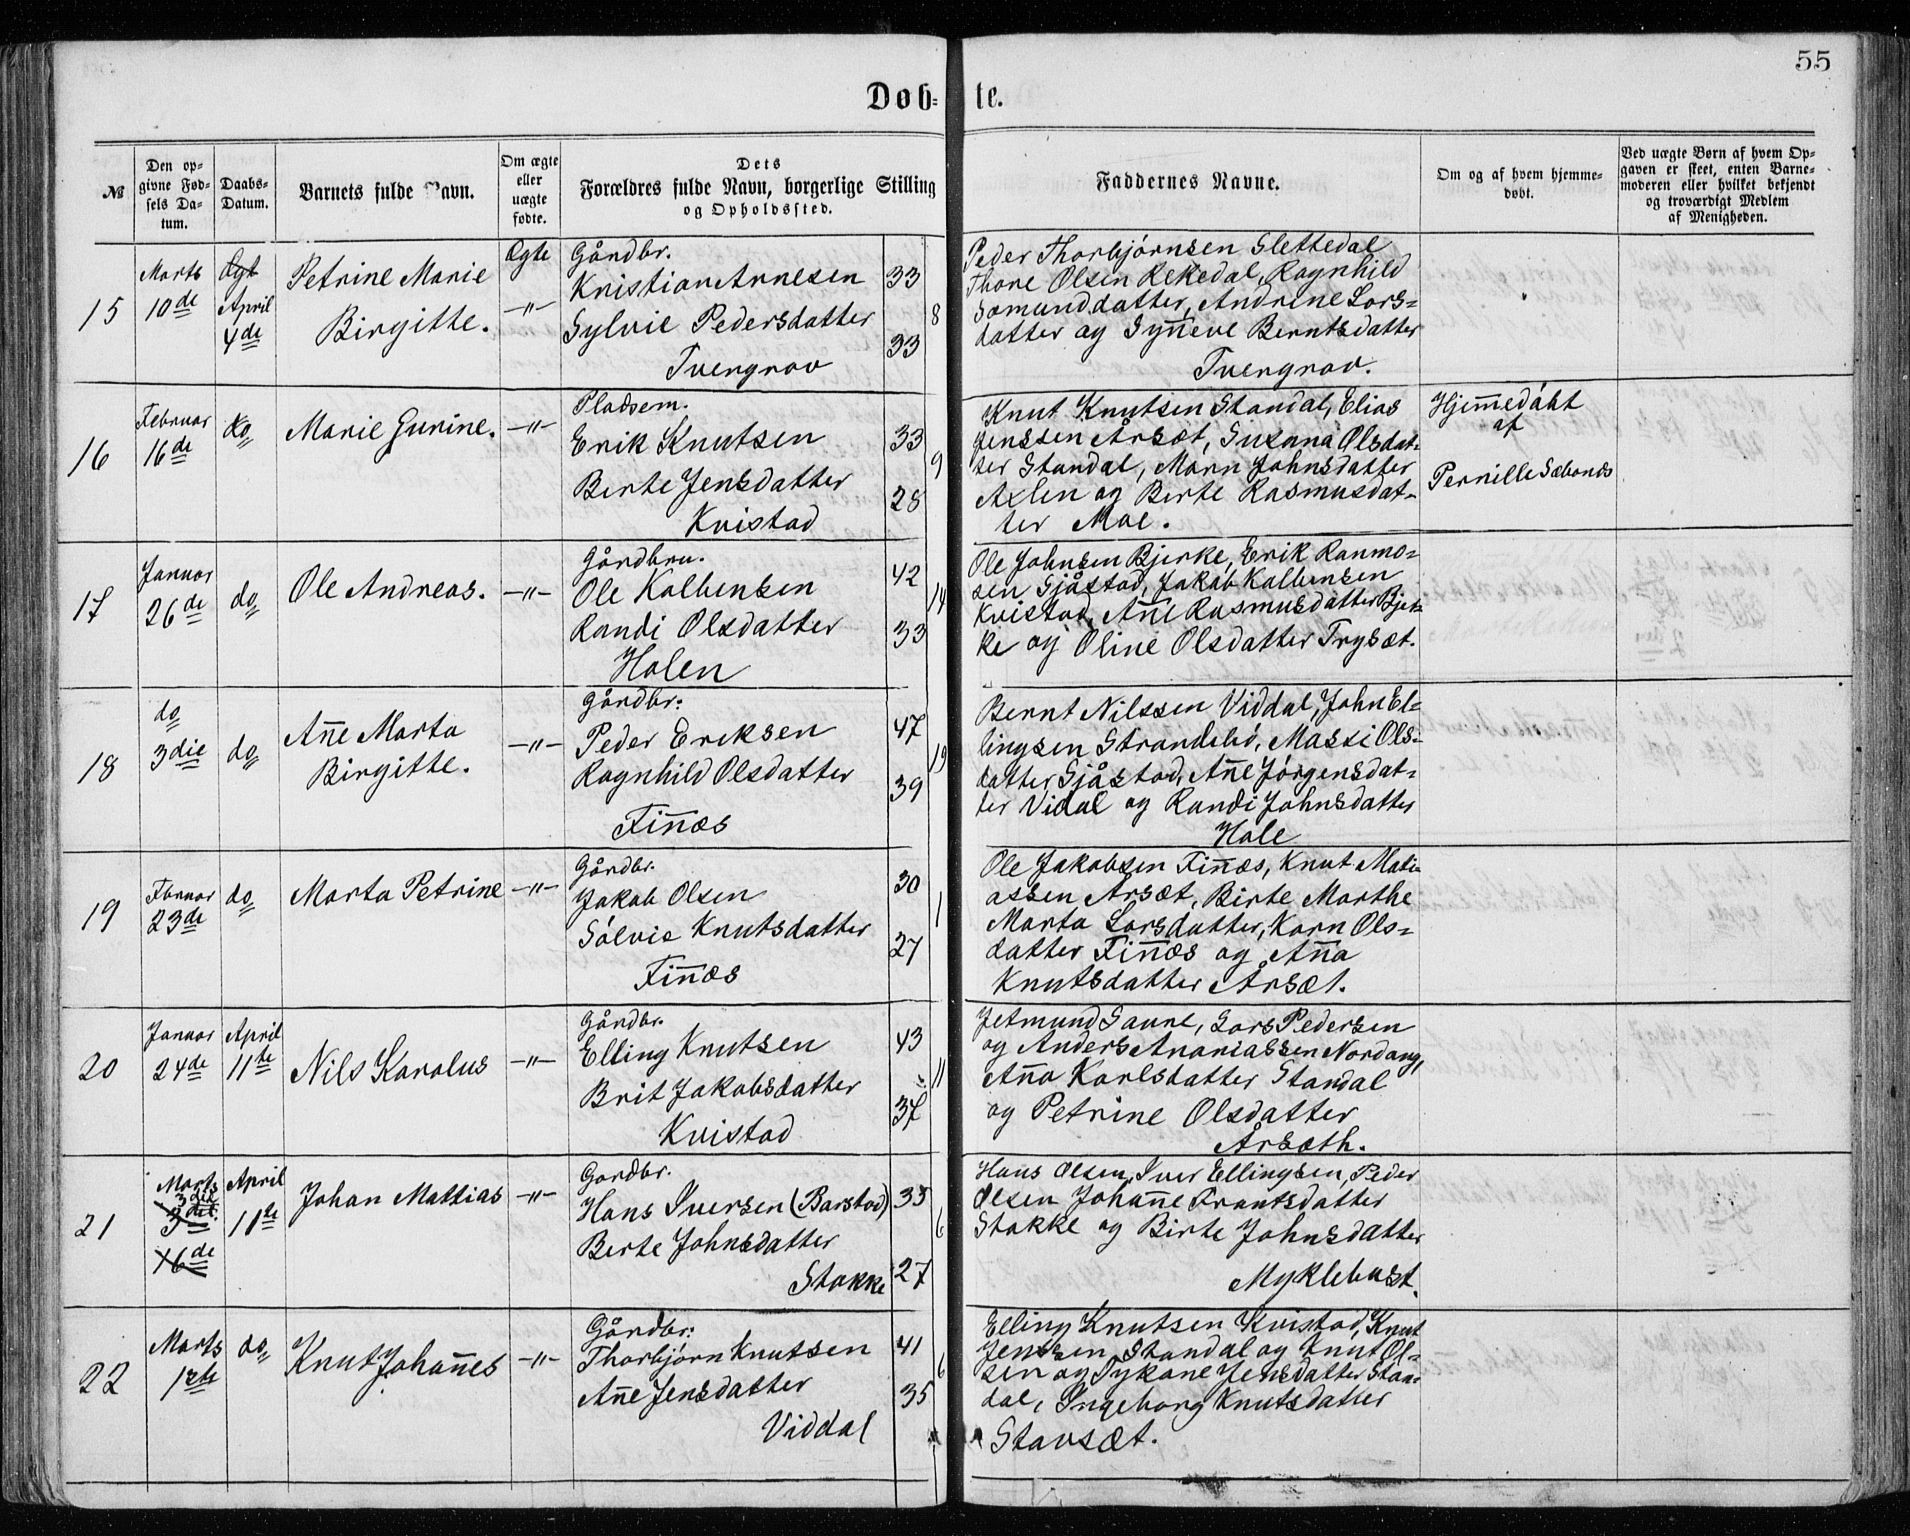 55
Døb-
te.
№
Den op-
givne Fød-
sels Da-
tum.
Daabs-
Datum.
Barnets fulde Navn.
Om ægte
eller
uægte
fødte.
Dets
Forældres fulde Navn, borgerlige Stilling
og Opholdssted.
Faddernes Navne.
Om og af hvem hjemme-
døbt.
Ved uægte Børn af hvem Op-
gaven er skeet, enten Barne-
moderen eller hvilket bekjendt
og troværdigt Medlem
af Menigheden.
15
Marts
10de
April
4de
Petrine Marie
Birgitte.
Ægte
-"-
Gårdbr.
Kristian Arnesen 33
Sylvie Pedersdatter 33
Tvergrov
8
Peder Thorbjørnsen Slettedal
Thore Olsen Rekedal, Ragnhild
Somunddatter, Andrine Lars-
datter og Synneve Berntsdatter
Tvergrov.
16
Februar
16de
do
Marie Gurine.
-"-
Pladsem.
Erik Knutsen 33
Berte Jensdatter 28
Kvistad
9
Knut Knutsen Standal, Elias
Jenssen Årsæt, Susana Olsdat-
ter Standal, Marn Johnsdatter
Axlen og Berte Rasmusdat-
ter Moe.
Hjemmedøbt
af
Pernille Sæbonds
17
Januar
26de
do
Ole Andreas.
-"-
Gårdbru.
Ole Kolbensen 42
Randi Olsdatter 33
Holen
14
Ole Johnsen Bjerke, Erik Ranmo-
sen Sjåstad, Jakob Kolbensen
Kvistad, Anne Rasmusdatter Bjer-
ke og Oline Olsdatter Trysæt.
18
do
3die
do
Anne Marta
Birgitte.
-"-
Gårdbr:
Peder Eriksen 47
Ragnhild Olsdatter 39
Finnæs
19
Bernt Nilssen Viddal, John El-
lingsen Strandebø, Massi Ols-
datter Sjåstad, Anne Jørgensdat-
ter Vidal og Randi Johnsdatter
Hole
19
Febrnar
23de
do
Marta Petrine
-"-
Gårdbr.
Jakob Olsen 30
Sølvie Knutsdatter 27
Finnæs
1
Ole Jakobsen Finnæs, Knut Mati-
assen Årsæt, Birte Marthe
Marta Larsdatter, Karn Ols-
datter Finnæs og Anna
Knutsdatter Årsæt.
20
Januar
24de
April
11te
Nils Karolus
-"-
Gårdbr.
Elling Knutsen 43
Brit Jakobsdatter 37
Kvistad
11
Jetmund Saure, Lars Pedersen
og Anders Ananiassen Nordang,
Anna Karlsdatter Standal
og Petrine Olsdatter
Årsæth.
21
Marts
3die
April
11te
Johan Mattias
-"-
Gardbr.
Hans Iversen (Barstad) 35
Berte Johnsdatter
Stokke 27
6
Hans Olsen, Iver Ellingsen, Peder
Olsen Johanne Frantsdatter
Stokke og Birte Johnsdatter
Myklebust.
22
Marts
do
Knut Johannes
-"-
Gårdbr:
Thorbjørn Knutsen 41
Anne Jensdatter 35
Viddal
6
Elling Knutsen Kvistad, Knut
Jenssen Standal og Knut Ol-
sen og Jensdatter Stan-
dal, Ingeborg Knutsdatter
Stavsæt.